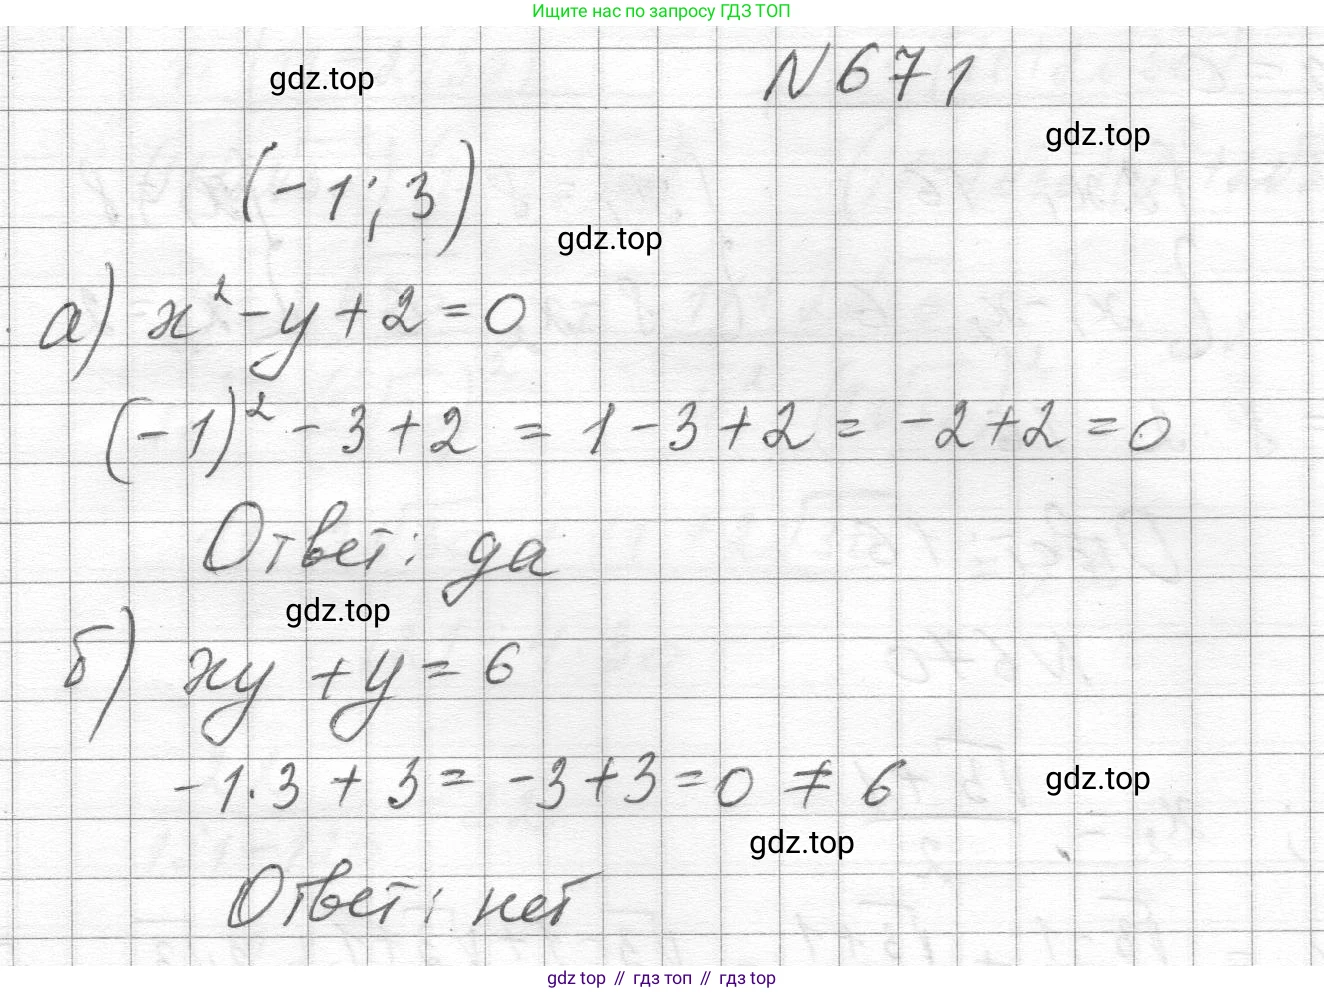 Ищите нас по запросу ГДЗ ТОП
gdz.top
N 671
gdz.top
(-1; 3)
gdz.top
а) x² - y + 2 = 0
(-1)² - 3 + 2 = 1 - 3 + 2 = -2 + 2 = 0
Ответ: да
gdz.top
б) xy + y = 6
-1 · 3 + 3 = -3 + 3 = 0 ≠ 6
gdz.top
gdz.top
Ответ: нет
gdz top // гдз топ // гдз top